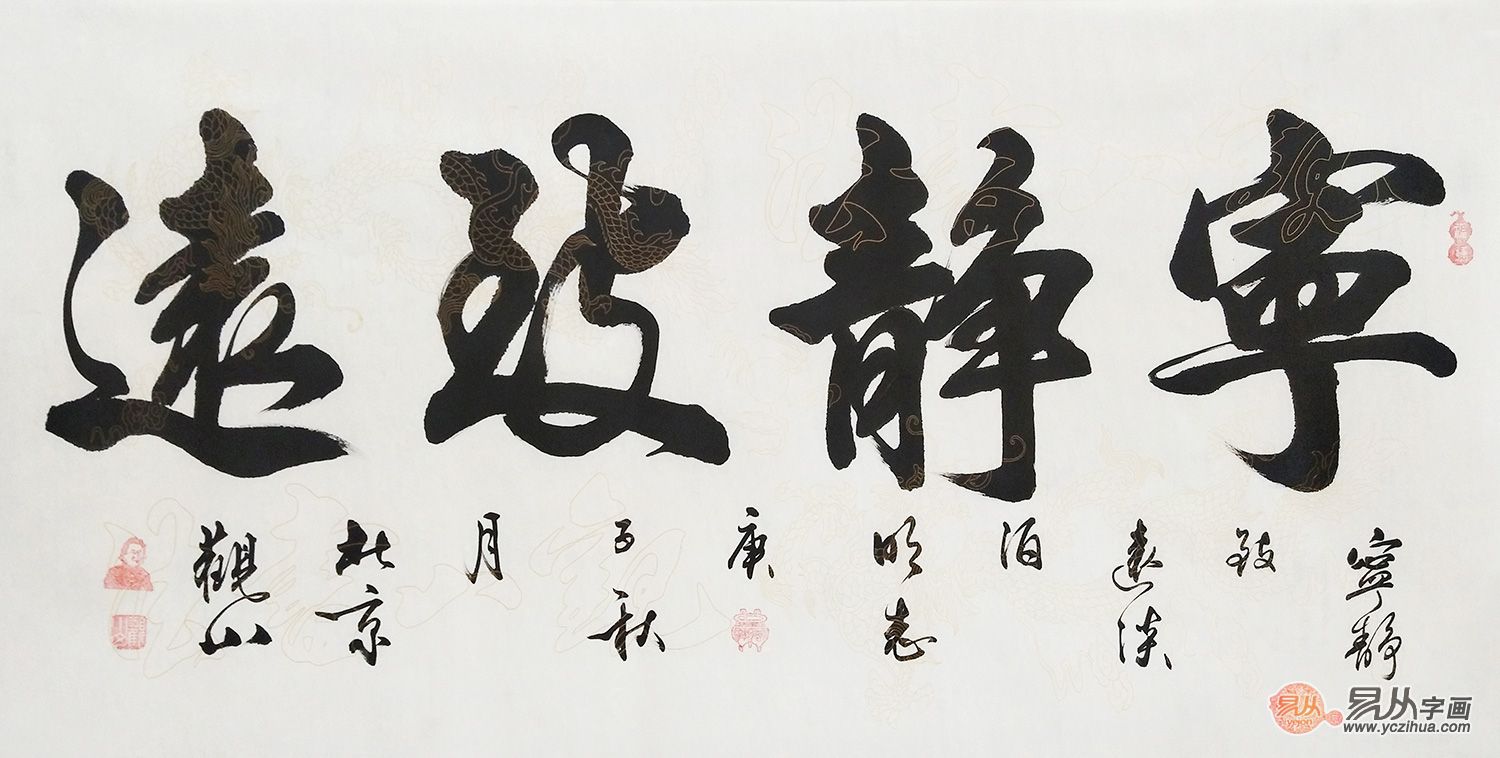 寧靜致遠
寧靜
致
遠淡
泊
明志
庚
子秋
月
北京
觀山
易从字画
yejon
www.yczihua.com